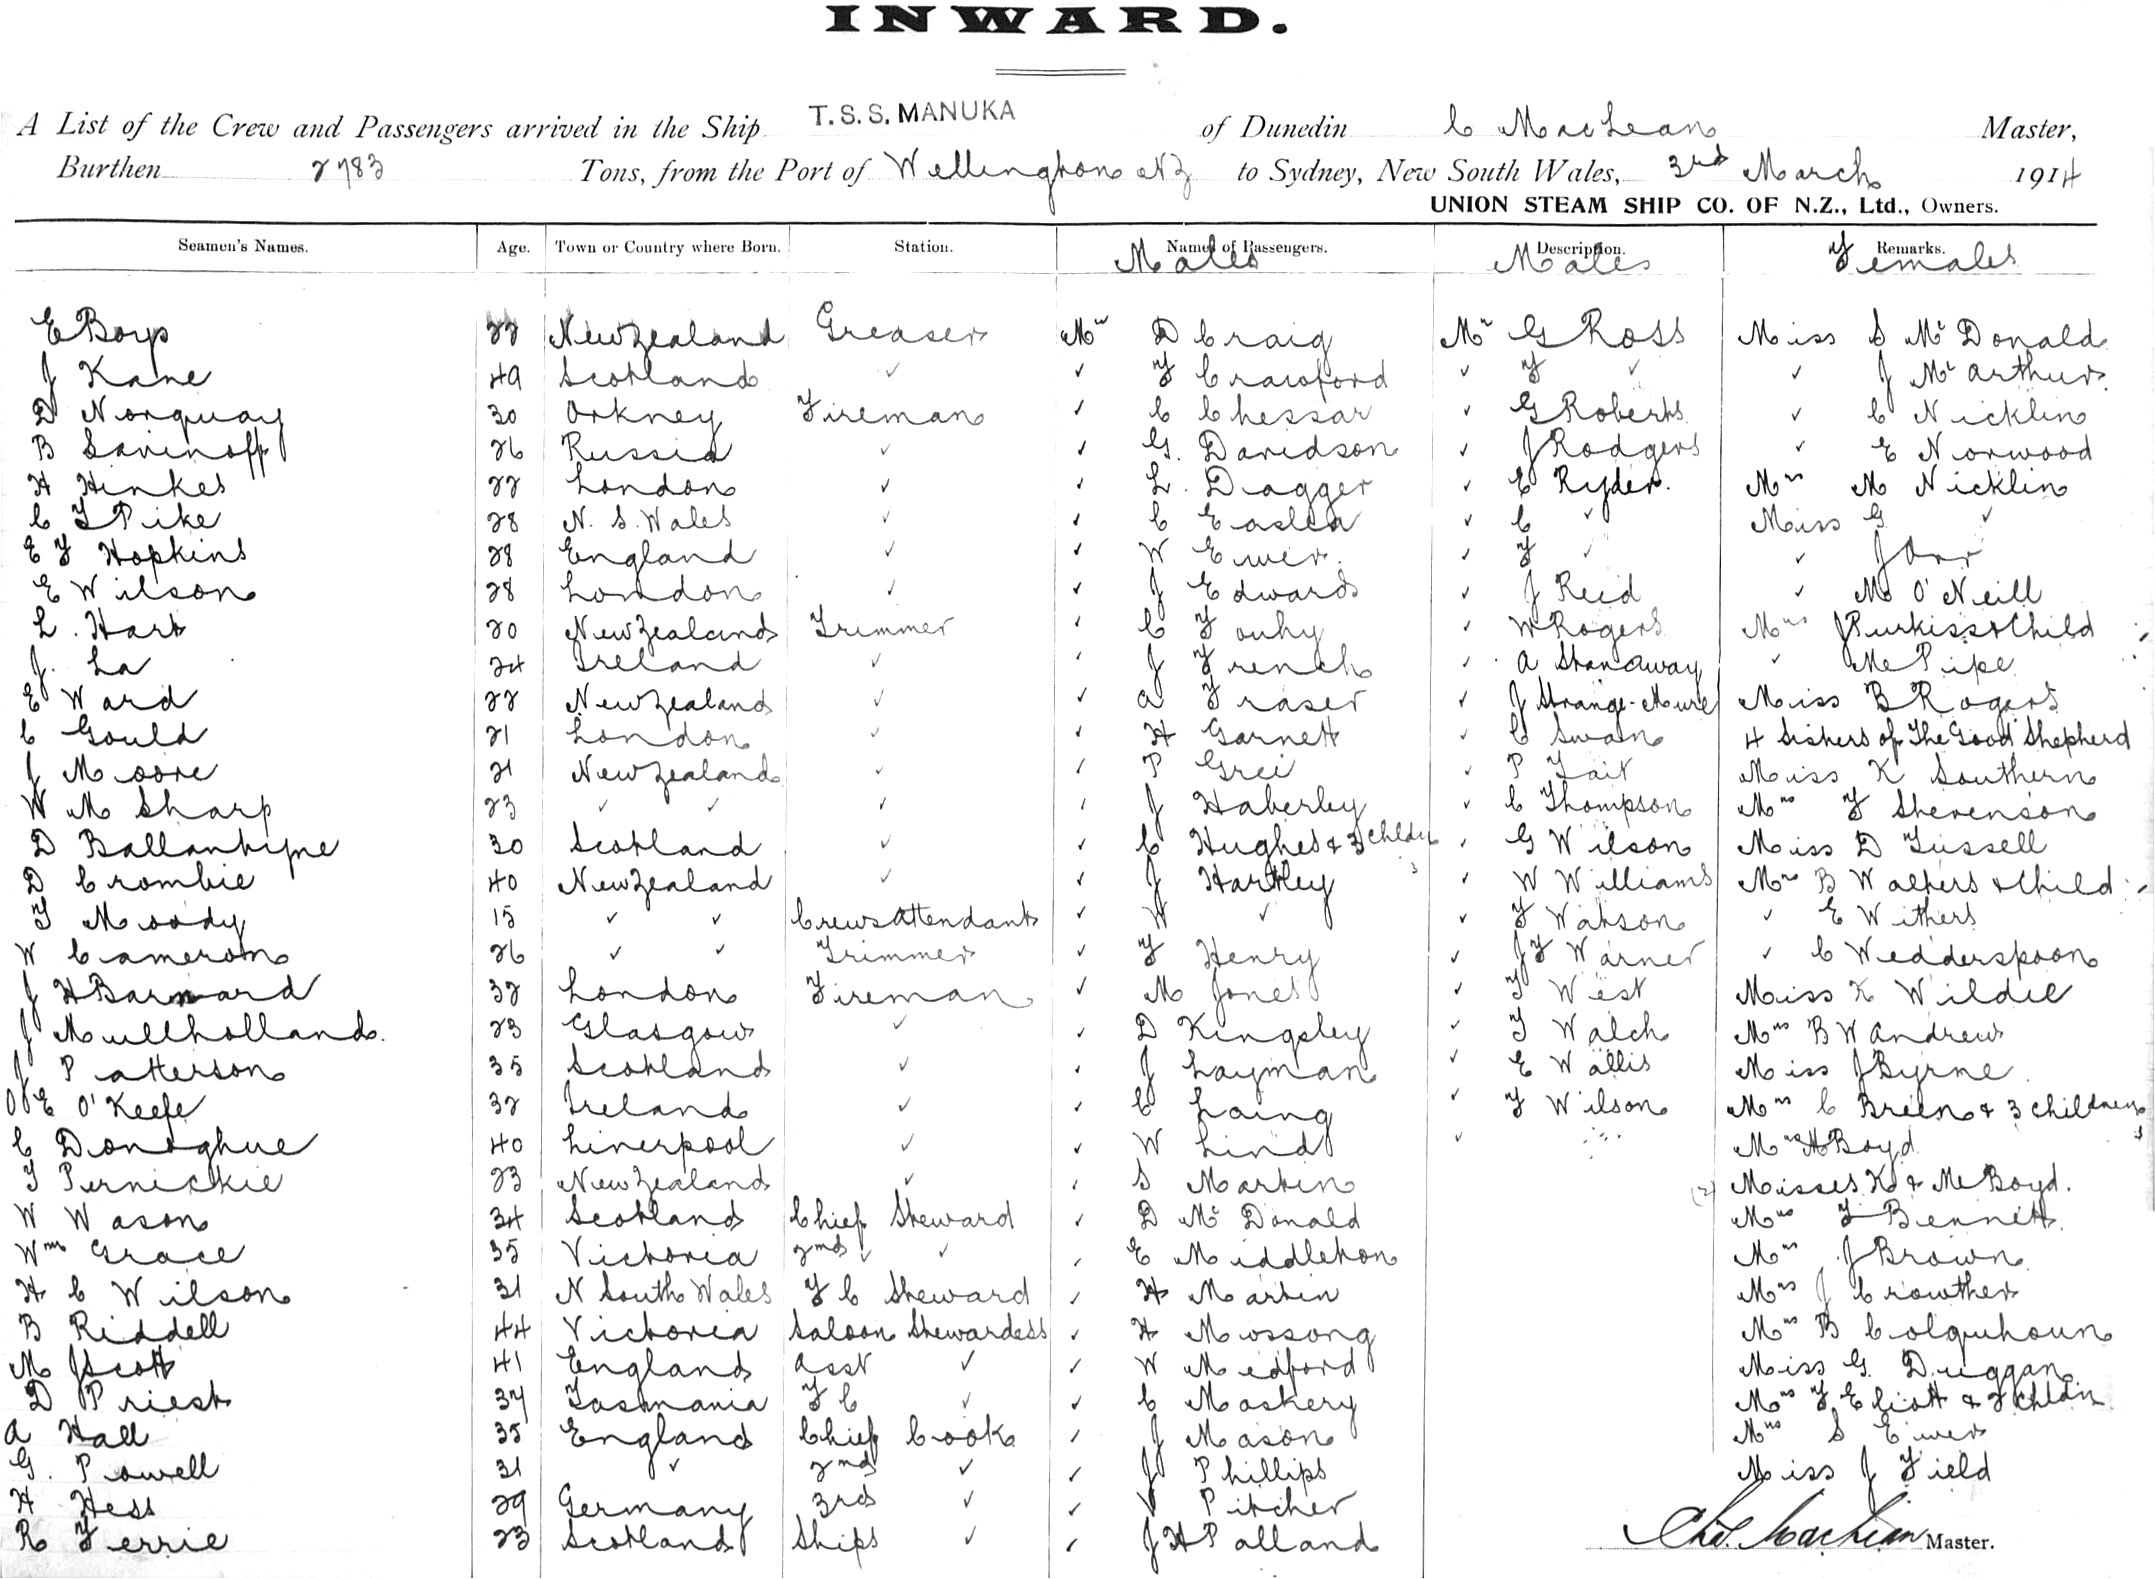 INWARD.
A List of the Crew and Passengers arrived in the Ship T.S.S. MANUKA of Dunedin C MacLean Master,
Burthen 2783 Tons, from the Port of Wellington NZ to Sydney, New South Wales, 3rd March 1914
UNION STEAM SHIP CO. OF N.Z., Ltd., Owners.
Seamen's Names. Age. Town or Country where Born. Station. Names of Passengers. Description. Remarks.
Males Males Females
E Boys 22 New Zealand Greaser Mr D Craig Mr G Ross Miss S Mc Donald
J Kane 49 Scotland ✓ ✓ F Crawford ✓ F ✓ ✓ J Mc Arthur
D Norquay 30 Orkney Fireman ✓ C Chessar ✓ G Roberts ✓ C Nicklin
B Savinoff 26 Russia ✓ ✓ G. Davidson ✓ J Rodgers ✓ E Norwood
H Hinkes 22 London ✓ ✓ L. Dagger ✓ E Ryder. Mrs M Nicklin
C T Pike 28 N. S. Wales ✓ ✓ C Easlea ✓ C ✓ Miss G ✓
E F Hopkins 28 England ✓ ✓ W Ewer. ✓ F ✓ ✓ J Orr
E Wilson 28 London ✓ ✓ J Edwards ✓ J Reid ✓ M O'Neill
L. Hart 20 New Zealand Trimmer ✓ C Fouhy ✓ W Rogers Mrs J Purkiss & Child
J. La 24 Ireland ✓ ✓ J French ✓ A Stanaway ✓ M Pipe
E Ward 22 New Zealand ✓ ✓ A Fraser ✓ J Strange-Mure Miss B Rogers
C Gould 21 London ✓ ✓ H Garnett ✓ C Swain 4 Sisters of The Good Shepherd
J Moore 21 New Zealand ✓ ✓ P Grei ✓ P Tait Miss K Southern
W M Sharp 23 ✓ ✓ ✓ ✓ J Haberley ✓ C Thompson Mrs F Stevenson
D Ballantyne 30 Scotland ✓ ✓ C Hughes & 3 Chldn ✓ G Wilson Miss D Tussell
D Crombie 40 New Zealand ✓ ✓ J Hartley ✓ W Williams Mrs B Walters & Child
T Moody 15 ✓ ✓ Crews Attendant ✓ W ✓ ✓ F Watson ✓ E Withers
W Cameron 26 ✓ ✓ Trimmer ✓ F Henry ✓ J F Warner ✓ C Wedderspoon
J H Barnard 32 London Fireman ✓ M Jones ✓ T West Miss K Wildie
J Mullholland. 23 Glasgow ✓ ✓ D Kingsley ✓ T Walch Mrs B W Andrew
J Patterson 35 Scotland ✓ ✓ J Layman ✓ E Wallis Miss J Byrne
E O'Keefe 32 Ireland ✓ ✓ C Laing ✓ F Wilson Mrs C Breen & 3 children
C Donoghue 40 Liverpool ✓ ✓ W Lind ✓ Mrs H Boyd
T Pernickie 23 New Zealand ✓ ✓ S Martin (2) Misses K & M Boyd.
W Wason 34 Scotland Chief Steward ✓ D Mc Donald Mrs F Bennett.
Wm Grace 35 Victoria 2nd ✓ ✓ ✓ E Middleton Mrs J Brown
H C Wilson 31 N South Wales F C Steward ✓ H Martin Mrs J Crowther
B Riddell 44 Victoria Saloon Stewardess ✓ H Mossong Mrs B Colquhoun
M J Scott 41 England Asst ✓ ✓ W Medford Miss G. Duggan
D Priest 37 Tasmania F C ✓ ✓ C Maskery Mrs F Eliott & 2 Chldn
A Hall 35 England Chief Cook ✓ J Mason Mrs S Ewer
G. Powell 31 ✓ 2nd ✓ ✓ J Phillips Miss J Field
H Hess 29 Germany 3rd ✓ ✓ V Pitcher
R Ferrie 23 Scotland Ships ✓ ✓ J H Palland Chas. MacLean Master.